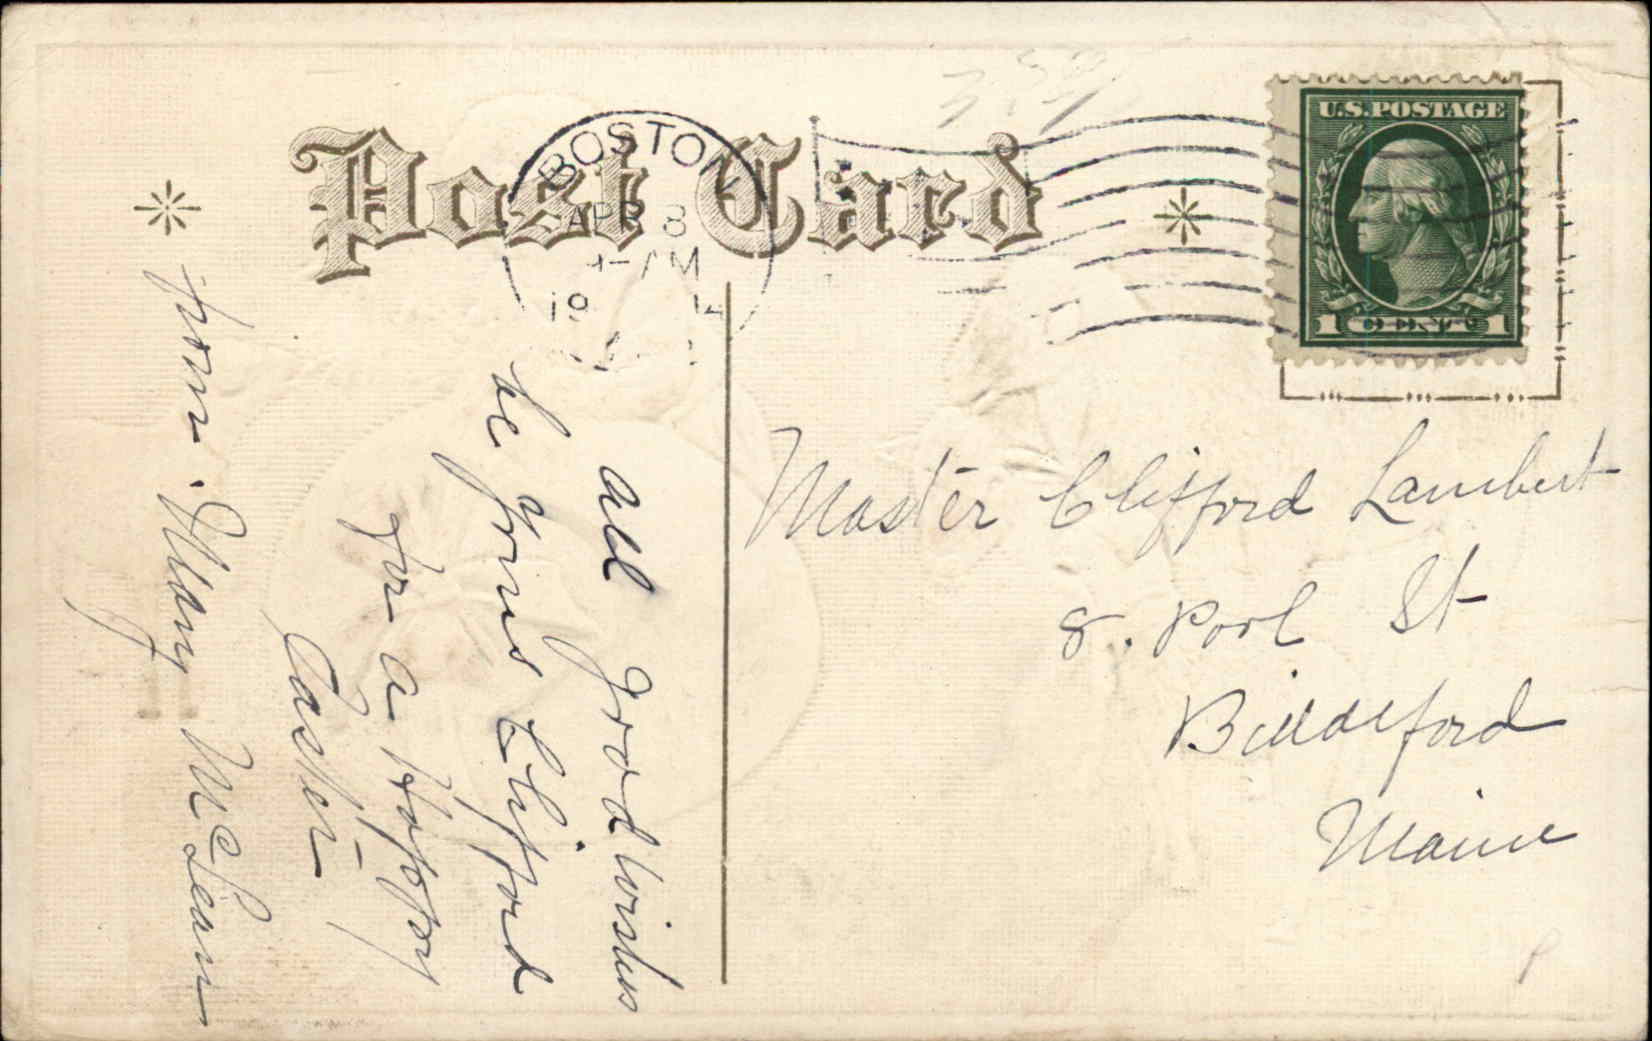 Post Card
BOSTON
APR 8
AM
19 14
U.S. POSTAGE
1 CENT 1
all good wishes
be yours Clifford
for a Happy
Easter
from Mary McLean
Master Clifford Lambert
8. Pool St
Biddeford
Maine